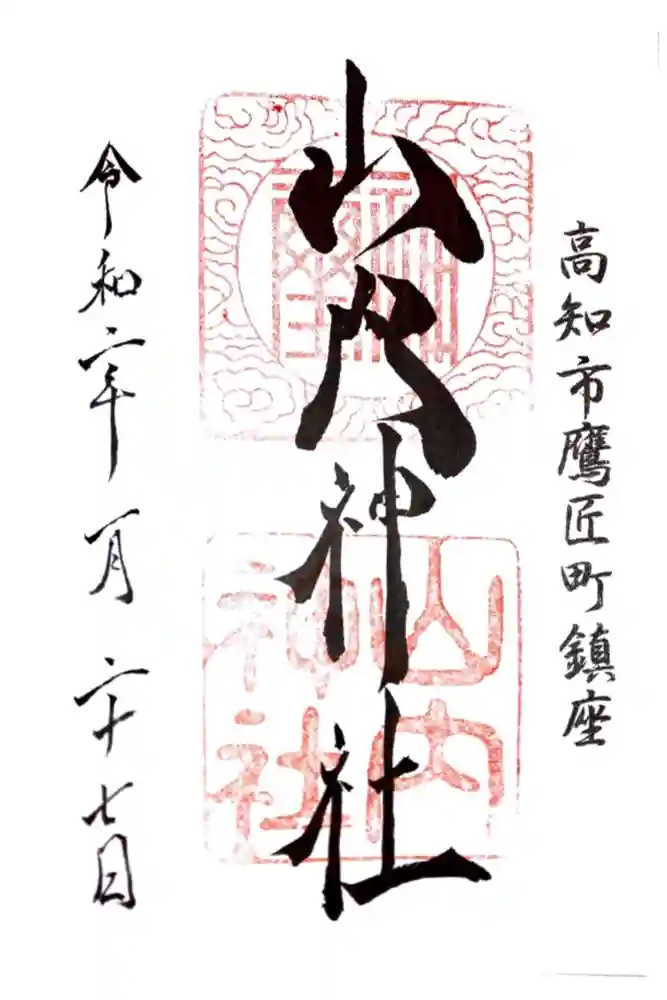 高知市鷹匠町鎮座
山内神社
山内神社
令和六年一月二十七日